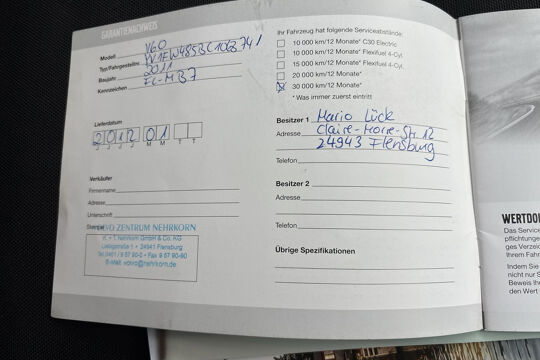 GARANTIENACHWEIS
Modell V60
Typ/Fahrgestellnr.
Baujahr 2011
Kennzeichen FL-MB7
Lieferdatum
2 0 1 2 0 1
J J J J M M T T
Verkäufer
Firmenname
Adresse
Unterschrift
VOLVO ZENTRUM NEHRKORN
K. + T. Nehrkorn GmbH & Co. KG
Liebigstraße 1 • 24941 Flensburg
E-Mail: volvo@nehrkorn.de
Ihr Fahrzeug hat folgende Serviceabstände:
10 000 km/12 Monate* C30 Electric
10 000 km/12 Monate* Flexifuel 4-Cyl.
15 000 km/12 Monate* Flexifuel 4-Cyl.
20 000 km/12 Monate*
30 000 km/12 Monate*
* Was immer zuerst eintritt
Besitzer 1 Mario Lück
Adresse Claire-Morre-Str. 12
24943 Flensburg
Telefon
Besitzer 2
Adresse
Telefon
Übrige Spezifikationen
WERTDO
Das Service
pflichtungen
ges Verzeic
Ihrem Fahr
Indem Sie
nicht nur S
Beweis Ihr
den Wert